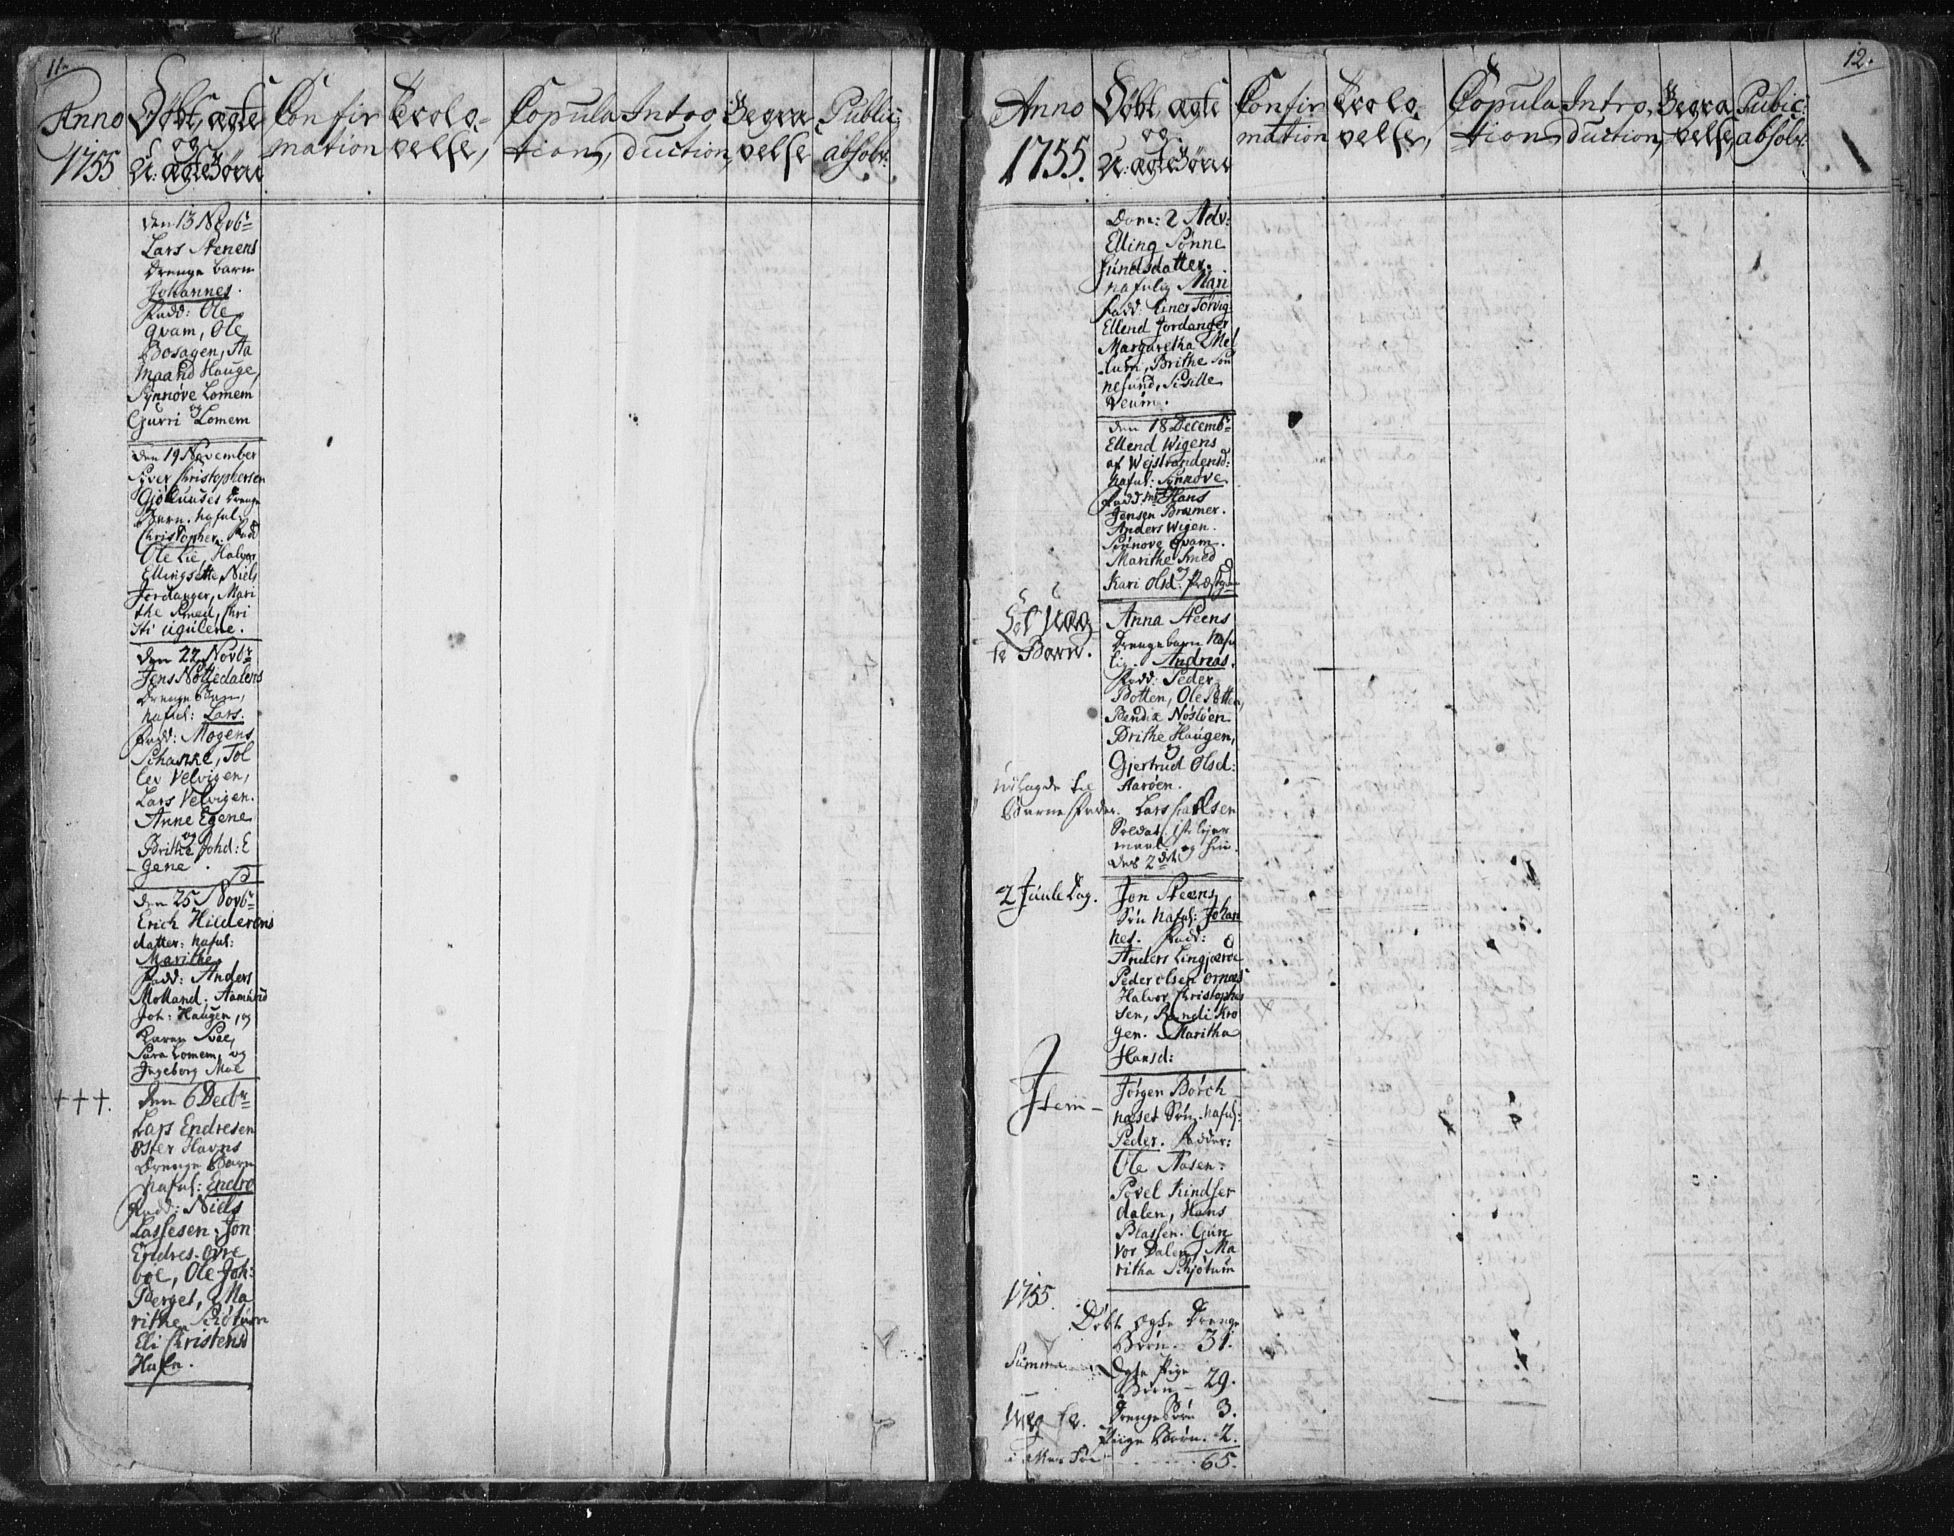 11.
Anno
1755
Døbt, ægte
og
U: ægte Børn
Confir
mation
Trolo-
velse,
Copula
tion,
Intro
duction,
Begra-
velse
Public:
absolv:
den 13 Novbr
Lars Stenens
Drenge barn
Johannes.
Fadd: Ole
Qvam, Ole
Bosagen, Aa
maand Hauge,
Synnøve Lomem
og
Gurri Lomem
den 19 November
Syver Christophersen
Drenge
Barn. haful:
Christopher. Fad
Ole Lie, Halvor
Ellingsætte, Niels
Jordanger, Mari
the Smed, Chri
sti Ugulene.
den 22 Novbr
Jens Nottedalens
Drenge Barn,
haful: Lars.
Fadd: Mogens
Schanke, Tol
lev Velvigen,
Lars Velvigen.
Anne Egene
og
Brithe Johd: E
gene.
den 25 Novbr
Erich Hillerens
datter: haful:
Marithe.
Fadd: Anders
Molland. Aamund
Joh: Haugen, og
Karen Svae,
Sara Lomem, og
Ingeborg Moe
+++.
den 6 Decbr
Lars Endresen
Øster Havns
Drenge Barn
haful: Endre
Fadd: Niels
Lassesen, Jon
Endres. øvre
boe, Ole Joh:
Berget, Ma
rithe Schøtum
Eli Christensd
Hafn.
12.
Anno
1755.
Døbt, ægte
og
U: ægte Børn
Confir
mation
Trolo-
velse,
Copula
tion,
Intro
duction,
Begra
velse,
Pubic:
absolv:
Dom: 2 Adv:
Elling Sønne
sunds datter.
hafulig Mari
Fadd: Einer Torvig
Ellend Jordanger
Margaretha Mel
lum, Brithe Søn
nesund, Sidselle
Veum.
den 18 Decembr
Ellend Wigens
af Wejstrandens d:
haful: Synnøve
Fadd Mr Hans
Jensen Bræmer.
Anders Wigen.
Synnøve Qvam.
Marithe Smed
og
Kari Olsd:
Et Uæg
te Barn.
Anna Steens
Drengebarn hafu
lig. Andreas.
Fadd: Peder
Botten, Ole Botten,
Bendix Nøstøen
Brithe Haugen,
og
Gjertrud Olsd:
Aarøen.
udlagde til
Barne Fader. Lars Carlsen
Soldat, 1ste lejer
maal og hen
des 2det
2 Juule Dag.
Jon Steens
Søn haful: Johan
nes. Fadd:
Anders Lingjærde
Peder Olsen Ornæs
Halvor Christophe
sen, Randi Kro
gen. Maritha
Hansd:
Item -
Jørgen Børch
næset Søn. haful:
Peder. Fadder:
Ole Aasen.
Povel Kindser
dalen, Hans
Blassen. Gun
vor Dalen, Ma
ritha Schjøtum
1755.
Døbte ægte Drenge
Børn. 31.
Summa
Ægte Pige
Børn - 29.
Uæg te. Drenge Børn 3.
Piige Børn. 2.
65.